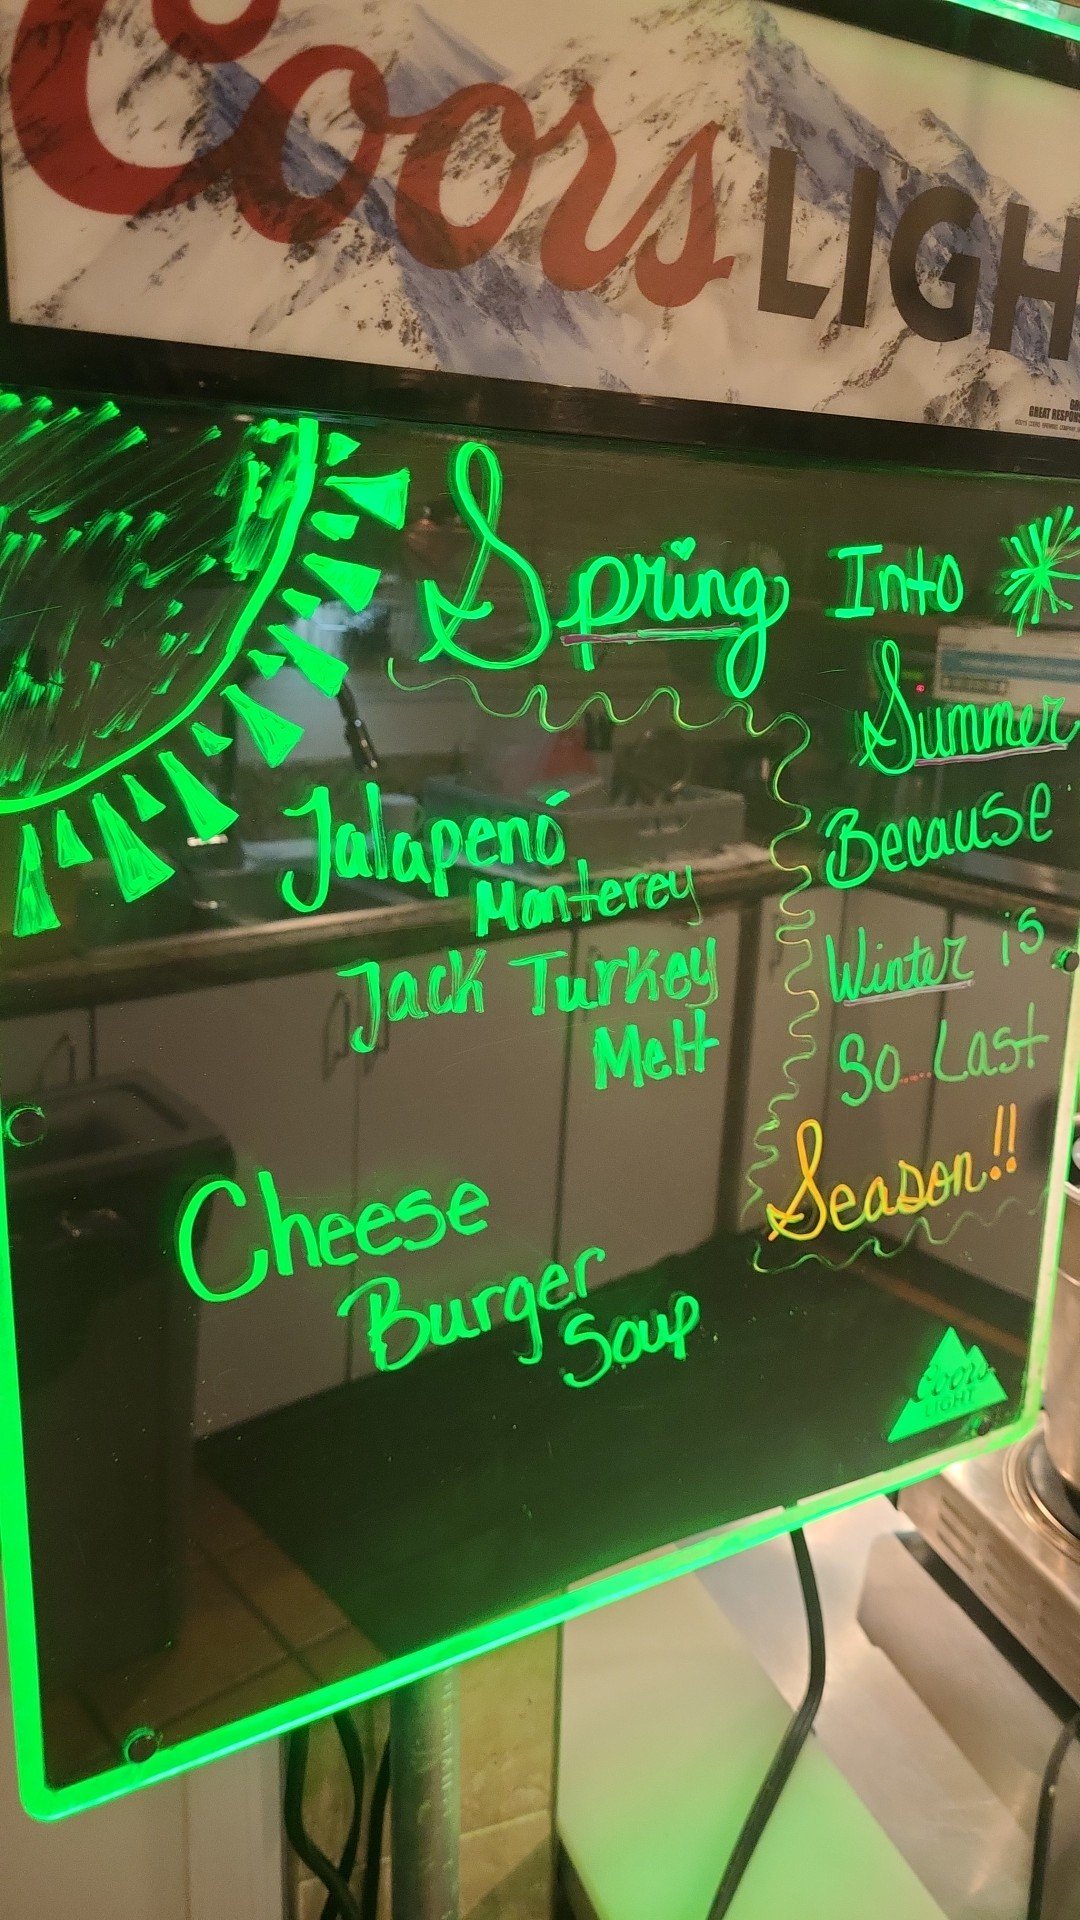 Coors LIGH
GREAT RESPON
Spring Into
Summer
Because
Winter is
So....Last
Season!!
Jalapenó
Monterey
Jack Turkey
Melt
Cheese
Burger
Soup
Coors
LIGHT